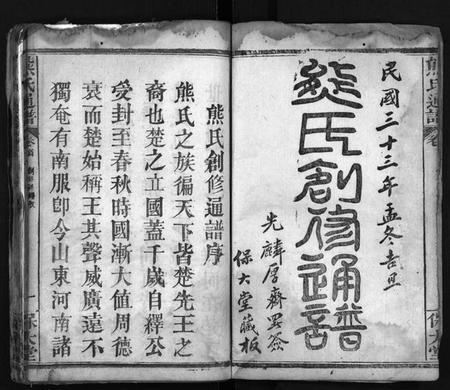 熊氏通譜
民國三十三年孟冬吉旦
熊氏創修通譜
光麟厚齋署簽
保大堂藏板
保大堂
熊氏創修通譜序
熊氏之族徧天下皆楚先王之
裔也楚之立國蓋千歲自繹公
受封至春秋時國漸大值周德
衰而楚始稱王其聲威廣遠不
獨奄有南服卽今山東河南諸
熊氏通譜
一
保大堂